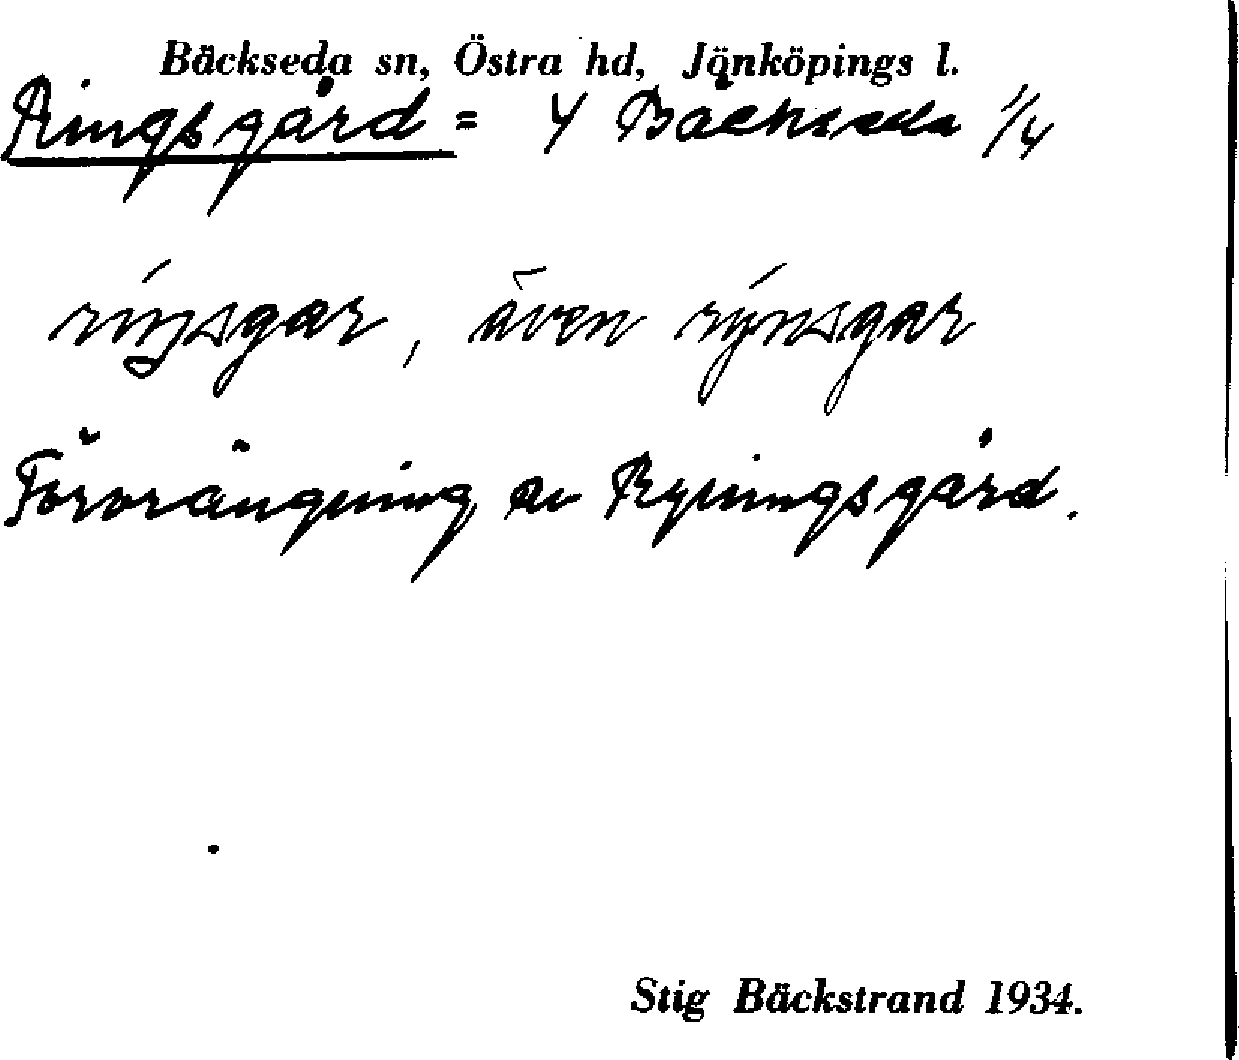 Bäckseda sn, Östra hd, Jönköpings l.
Ringsgård = Y Bäckseda 1/4
ríŋsgar, även rýnsgar
Förvrängning av Ryningsgård.
Stig Bäckstrand 1934.